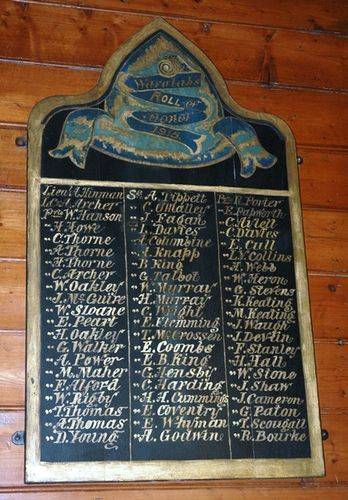 Waratah's
ROLL OF
HONOR
1915
Lieu. A. Hinman
L.C. A. Archer
Pte W. Hanson
" H. Howe
" C. Thorne
" A. Thorne
" H. Thorne
" C. Archer
" W. Oakley
" J. McGuire
" W. Sloane
" E. Peart
" H. Oakley
" G. Walker
" A. Power
" M. Maher
" F. Alford
" W. Rigby
" T. Thomas
" A. Thomas
" D. Young
A. Tippett
" C. O'Malley
" J. Fagan
" L. Davies
" A. Columbine
" A. Knapp
" F. King
" G. Talbot
" W. Murray
" H. Murray
" C. Wright
" E. Flemming
" L. McCrossen
" E. Coombs
" E. B. King
" G. Hensby
" C. Harding
" H. A. Cummings
" E. Coventry
" E. Whyman
" A. Godwin
Pte R. Porter
" E. Papworth
" C. Airell
" C. Davies
" E. Cull
" L. V. Collins
" H. Webb
" W. Heron
" L. Stevens
" K. Keating
" M. Keating
" J. Waugh
" J. Devlin
" F. Stanley
" H. Hall
" W. Stone
" J. Shaw
" J. Cameron
" G. Paton
" T. Scougall
" R. Bourke